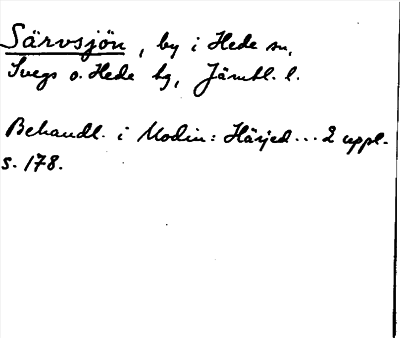 Särvsjön, by i Hede sn,
Svegs o. Hede tg, Jämtl. l.
Behandl. i Modin: Härjed... 2 uppl.
s. 178.